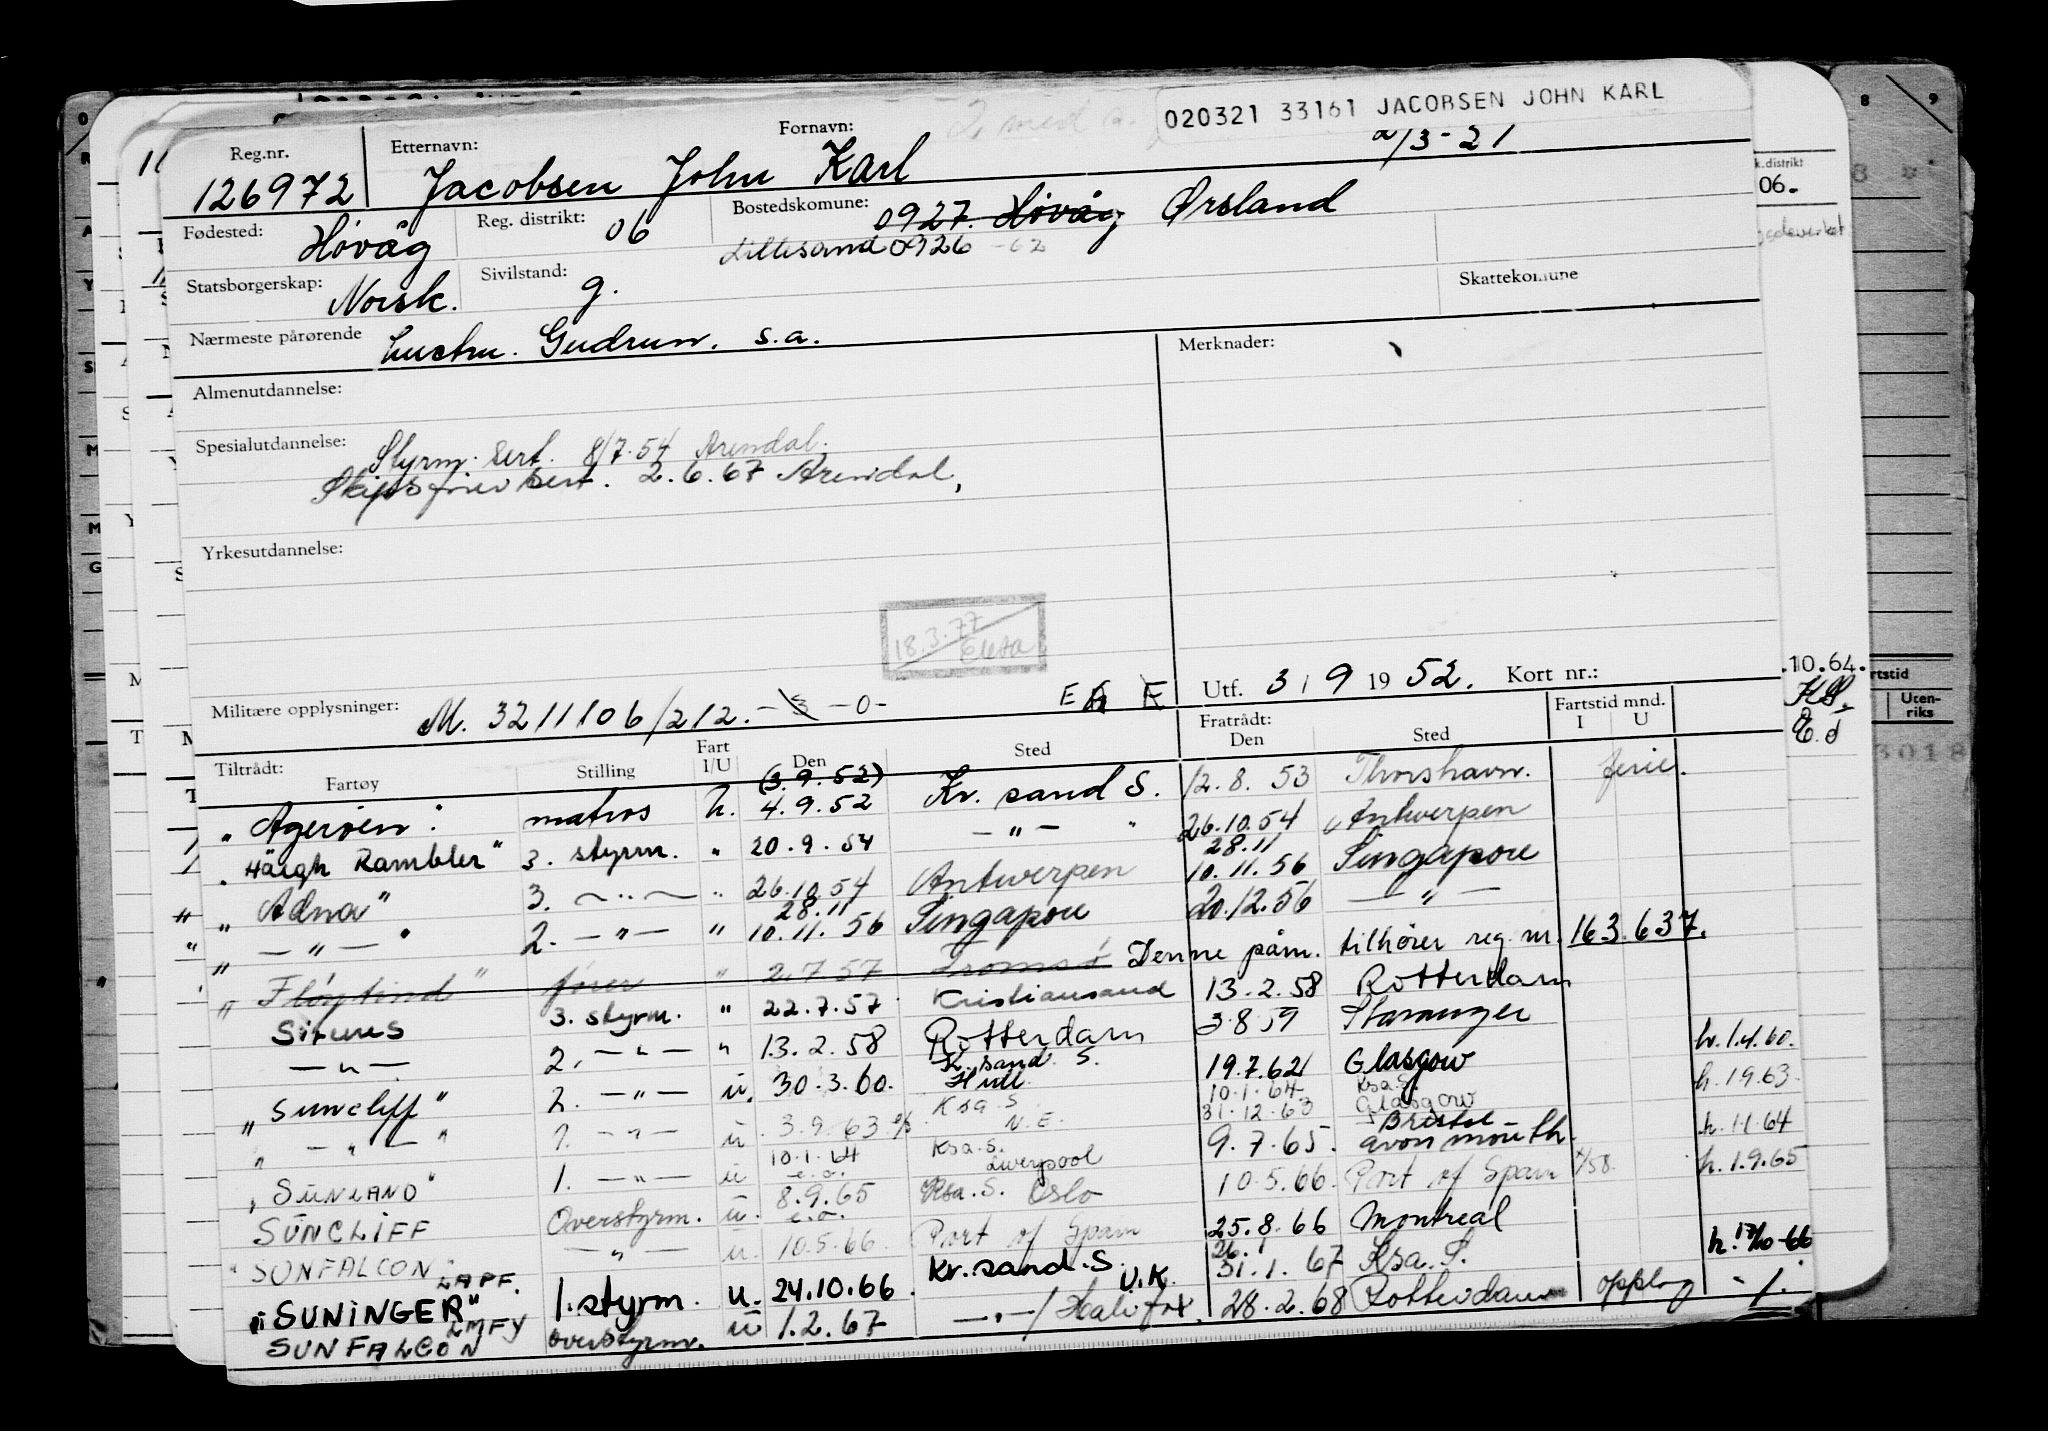 020321 33161 JACOBSEN JOHN KARL
Reg.nr. Etternavn: Fornavn: 2/3-21
126972 Jacobsen John Karl
Fødested: Høvåg Reg. distrikt: 06 Bostedskomune: 0927. Høvåg Ørsland
Lillesand 0926 -62
Statsborgerskap: Norsk. Sivilstand: g. Skattekomune
Nærmeste pårørende hustru. Gudrun. s.a. Merknader:
Almenutdannelse:
Spesialutdannelse: Styrm. sert. 8/7.54 Arendal.
Skipsfører sert. 2.6.67 Arendal,
Yrkesutdannelse:
18.3.77
Militære opplysninger: M. 3211106/212. - 3 - 0 - Utf. 3 / 9 19 52. Kort nr.:
Tiltrådt: Fartøy Stilling Fart I/U Den Sted Fratrådt: Den Sted Fartstid mnd. I U
(3.9.52)
"Agerøen" matros h. 4.9.52 Kr. sand S. 12.8.53 Thorshavn. ferie.
"Høegh Rambler" 3. styrm. " 20.9.54 - " - " 26.10.54 Antwerpen
"Adna" 3. - " - " 26.10.54 Antwerpen 28.11 10.11.56 Singapore
" - " - " 2. - " - " 28.11 10.11.56 Singapore 20.12.56 - " -
"Fløytind" fører " 2.7.57 Tromsø Denne påm. tilhører reg. nr. 163.637.
Sirius 3. styrm. " 22.7.57 Kristiansand 13.2.58 Rotterdam
- " - 2. - " - " 13.2.58 Rotterdam 3.8.59 Stavanger
"Suncliff" 2. - " - u. 30.3.60. K. sand S. Hull 19.7.62 Glasgow h. 1.4.60.
" - " - " 1. - " - u 3.9.63 Ksa S. N.E. 10.1.64 31.12.63 Ksa. S. Glasgow h. 1.9.63.
"SUNLAND" 1. - " - u 10.1.64 e.o. Ksa. S. Liverpool 9.7.65. Bristol avonmouth. h. 1.1.64
SUNCLIFF Overstyrm. u. 8.9.65 e.o. Ksa. S. Oslo 10.5.66. Port of Spain h. 1.9.65
"SUNFALCON" - " - u. 10.5.66. Port of Spain 25.8.66 Montreal
LAPF.
"SUNINGER" 1. styrm. u. 24.10.66. Kr. sand. S. U.K. 26.1 31.1.67 Ksa. S. h. 17/10-66
LMFY
SUNFALCON overstyrm. u 1.2.67 - " - / Halifax. 28.2.68 Rotterdam opplag - / .
k.distrikt
06.
.10.64.
rtstid
Uten-
riks
3018
8 9